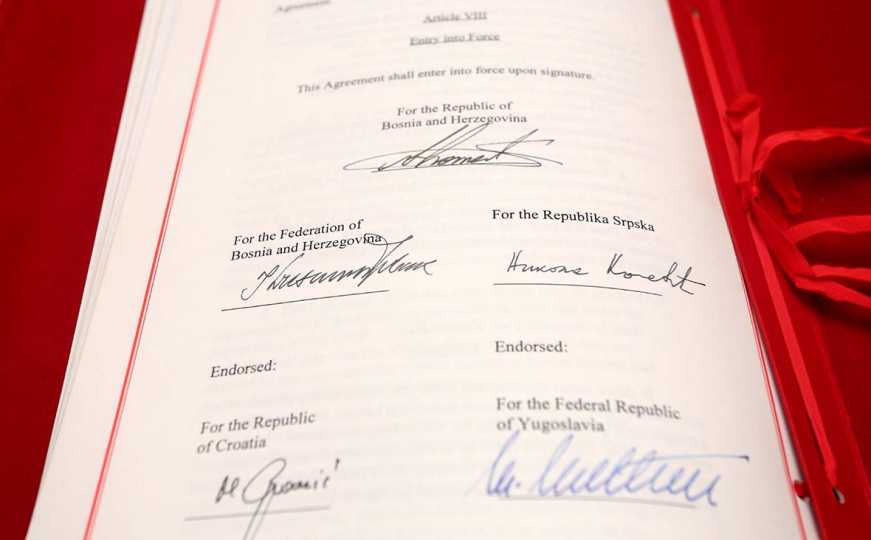 Agreement.
Article VIII
Entry into Force
This Agreement shall enter into force upon signature.
For the Republic of
Bosnia and Herzegovina
For the Federation of
Bosnia and Herzegovina
For the Republika Srpska
Endorsed:
Endorsed:
For the Republic
of Croatia
For the Federal Republic
of Yugoslavia